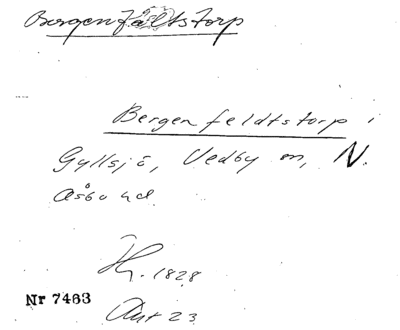 Bergenfältstorp
Bergenfeldtstorp i
Gyllsjö, Vedby sn, N.
Åsbo hd
Hf. 1828
Akt 23
Nr 7463